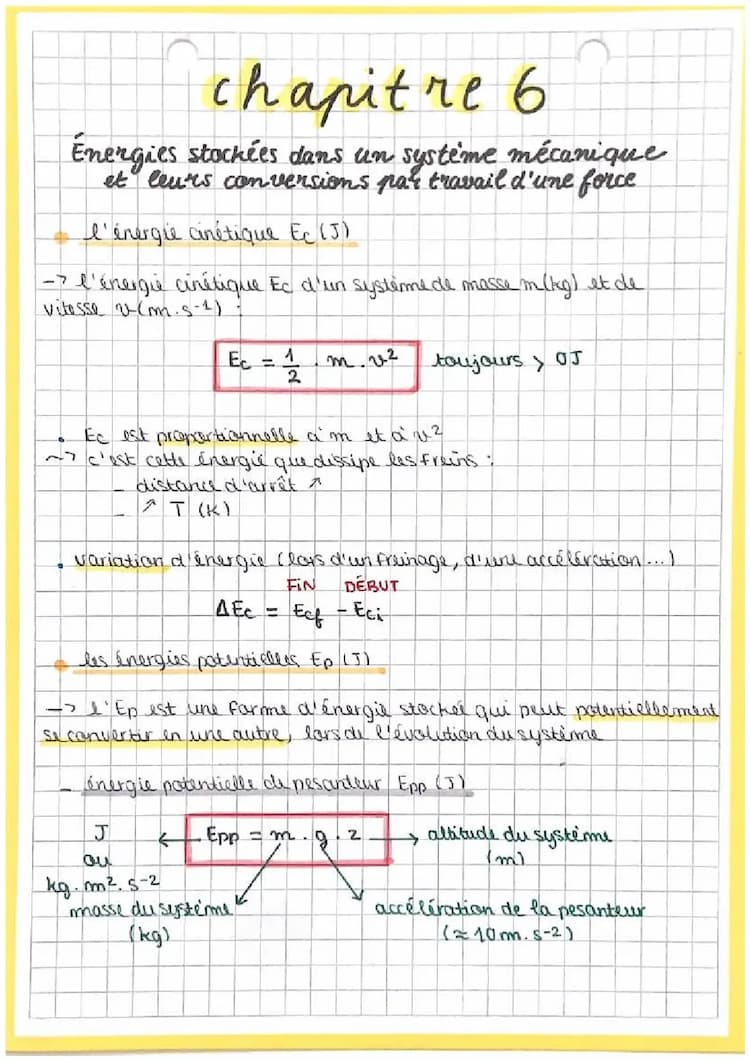 chapitre 6
Énergies stockées dans un système mécanique
et leurs conversions par travail d'une force
l'énergie cinétique Ec (J)
-> l'énergie cinétique Ec d'un système de masse m (kg) et de
vitesse v (m.s-1) :
Ec = 1/2 . m . v² toujours > 0J
• Ec est proportionnelle à m et à v²
~> c'est cette énergie que dissipe les freins :
- distance d'arrêt ↗
- ↗ T (K)
• variation d'énergie (lors d'un freinage, d'une accélération...)
FIN DÉBUT
ΔEc = Ecf - Eci
les énergies potentielles Ep (J)
-> l'Ep est une forme d'énergie stockée qui peut potentiellement
se convertir en une autre, lors de l'évolution du système
- énergie potentielle de pesanteur Epp (J)
J ← Epp = m . g . z → altitude du système
ou (m)
kg . m² . s-2
masse du système accélération de la pesanteur
(kg) (≈ 10 m . s-2)